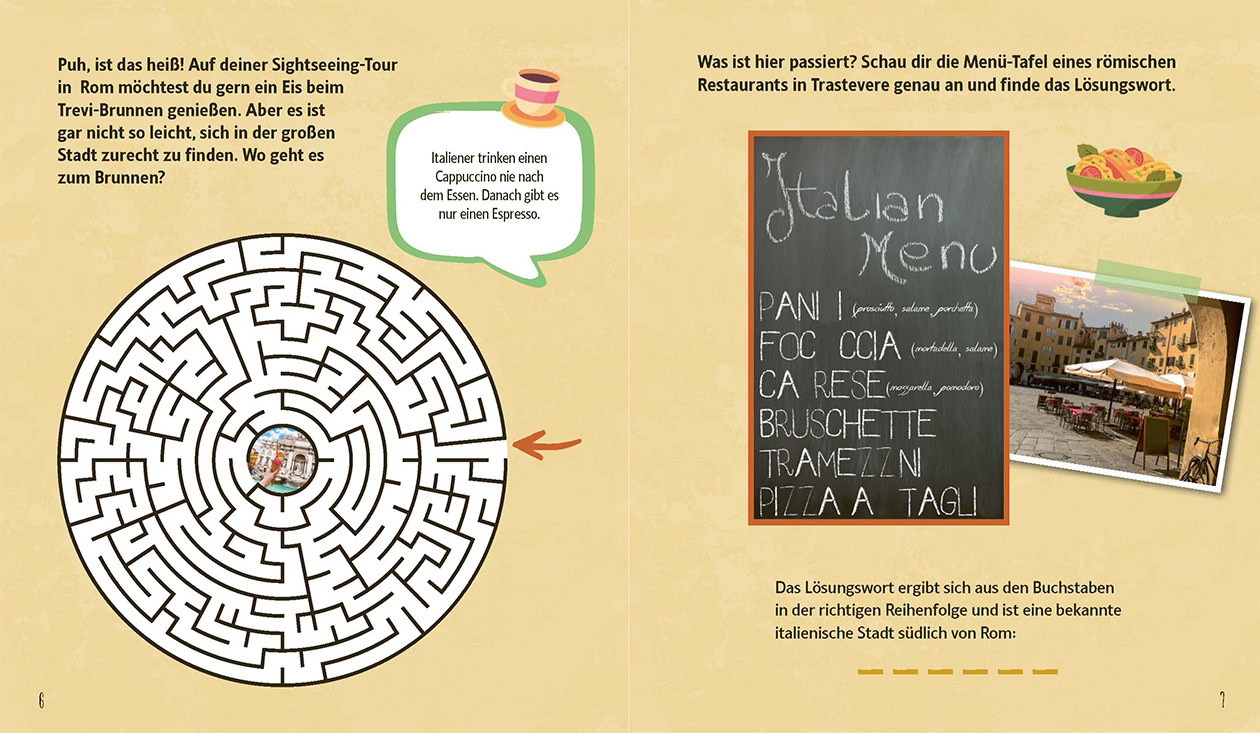 Puh, ist das heiß! Auf deiner Sightseeing-Tour
in Rom möchtest du gern ein Eis beim
Trevi-Brunnen genießen. Aber es ist
gar nicht so leicht, sich in der großen
Stadt zurecht zu finden. Wo geht es
zum Brunnen?
Italiener trinken einen
Cappuccino nie nach
dem Essen. Danach gibt es
nur einen Espresso.
6
Was ist hier passiert? Schau dir die Menü-Tafel eines römischen
Restaurants in Trastevere genau an und finde das Lösungswort.
Italian
Menu
PANI I (prosciutto, salame, porchetta)
FOC CCIA (mortadella, salame)
CA RESE (mozzarella, pomodoro)
BRUSCHETTE
TRAMEZZ NI
PIZZA A TAGLI
Das Lösungswort ergibt sich aus den Buchstaben
in der richtigen Reihenfolge und ist eine bekannte
italienische Stadt südlich von Rom:
7